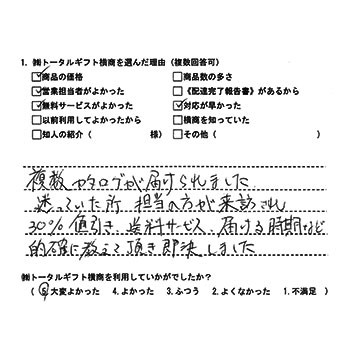 1. ㈱トータルギフト横商を選んだ理由（複数回答可）
☑商品の価格 □商品数の多さ
☑営業担当者がよかった □《配達完了報告書》があるから
☑無料サービスがよかった ☑対応が早かった
□以前利用してよかったから □横商を知っていた
□知人の紹介（ 様） □その他（ ）
複数カタログが届けられました
迷っていた所 担当の方が来訪され
30%値引き、無料サービス、届ける時期など
的確に教えて頂き即決しました
㈱トータルギフト横商を利用していかがでしたか？
（ 5.大変よかった 4.よかった 3.ふつう 2.よくなかった 1.不満足 ）